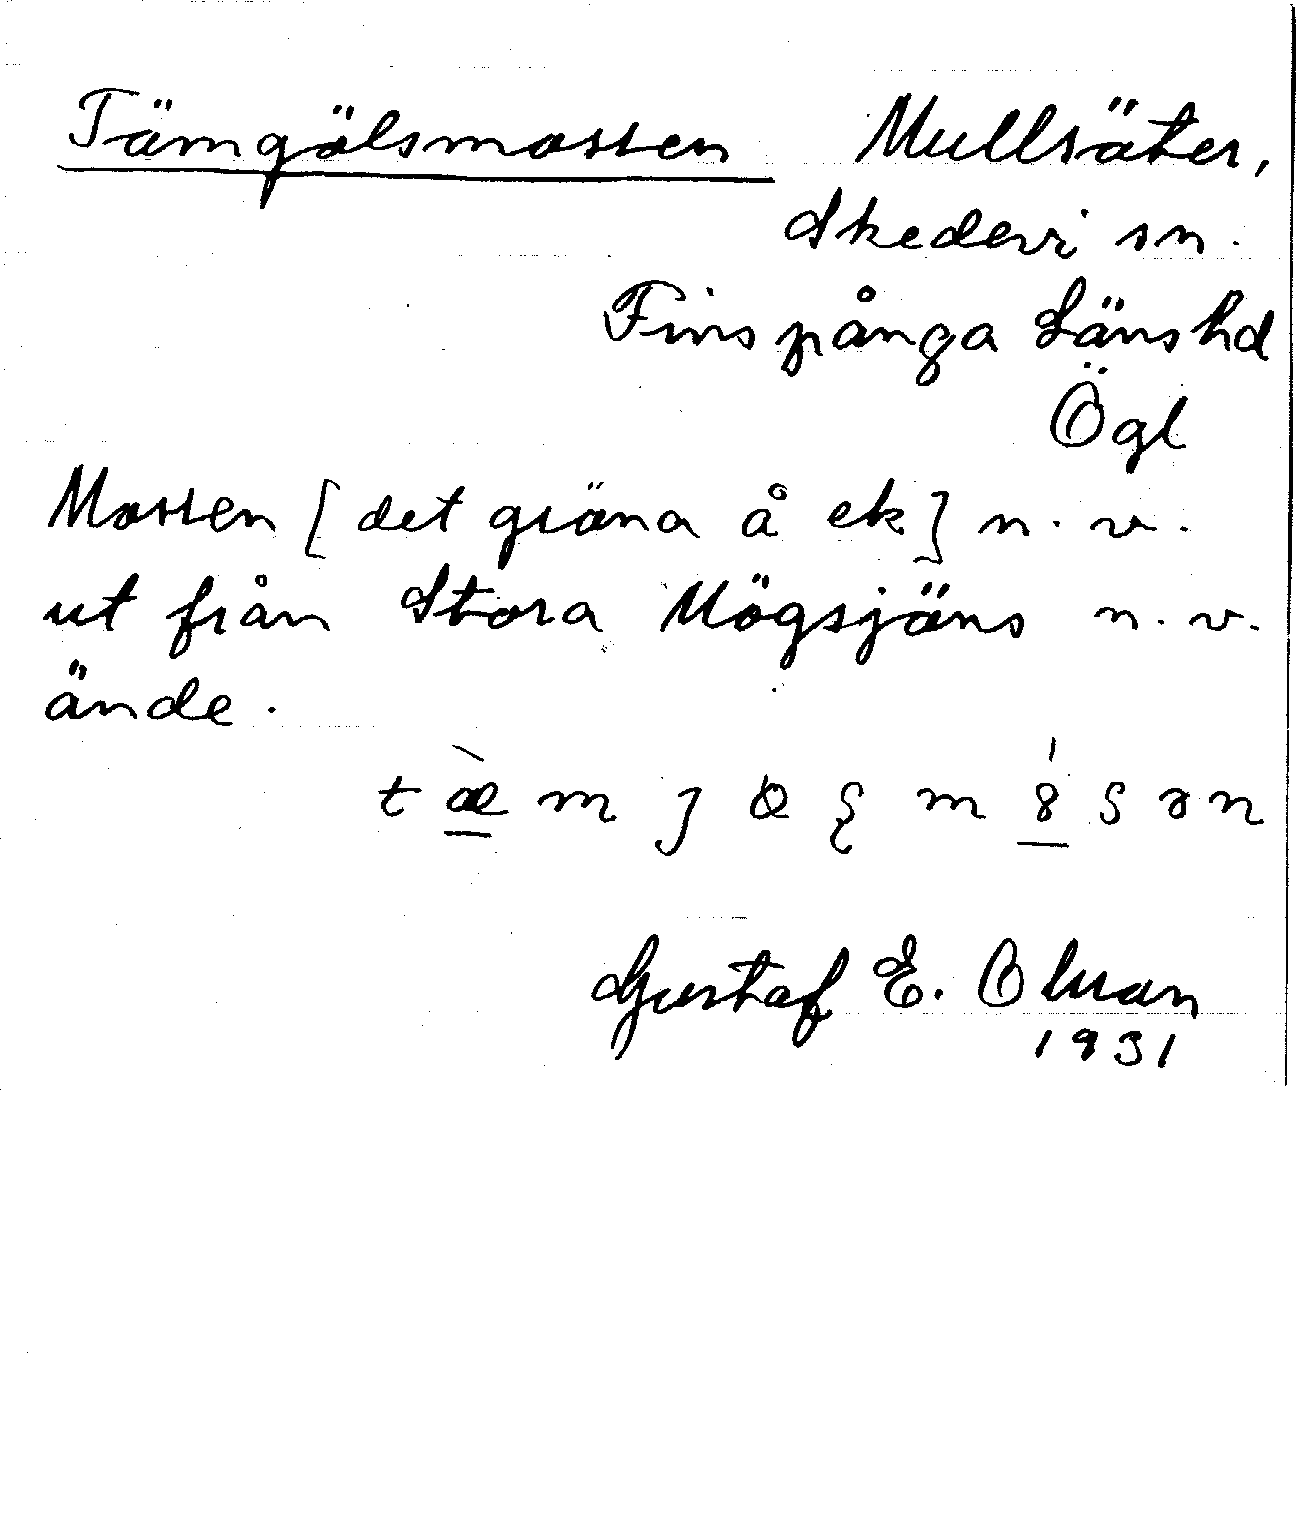 Tämgölsmossen Mullsäter,
Skedevi sn.
Finspånga Länshd
Ögl
Mossen [det gröna å ek] n. v.
ut från Stora Mögsjöns n. v.
ände.
Gustaf E. Olsson
1931